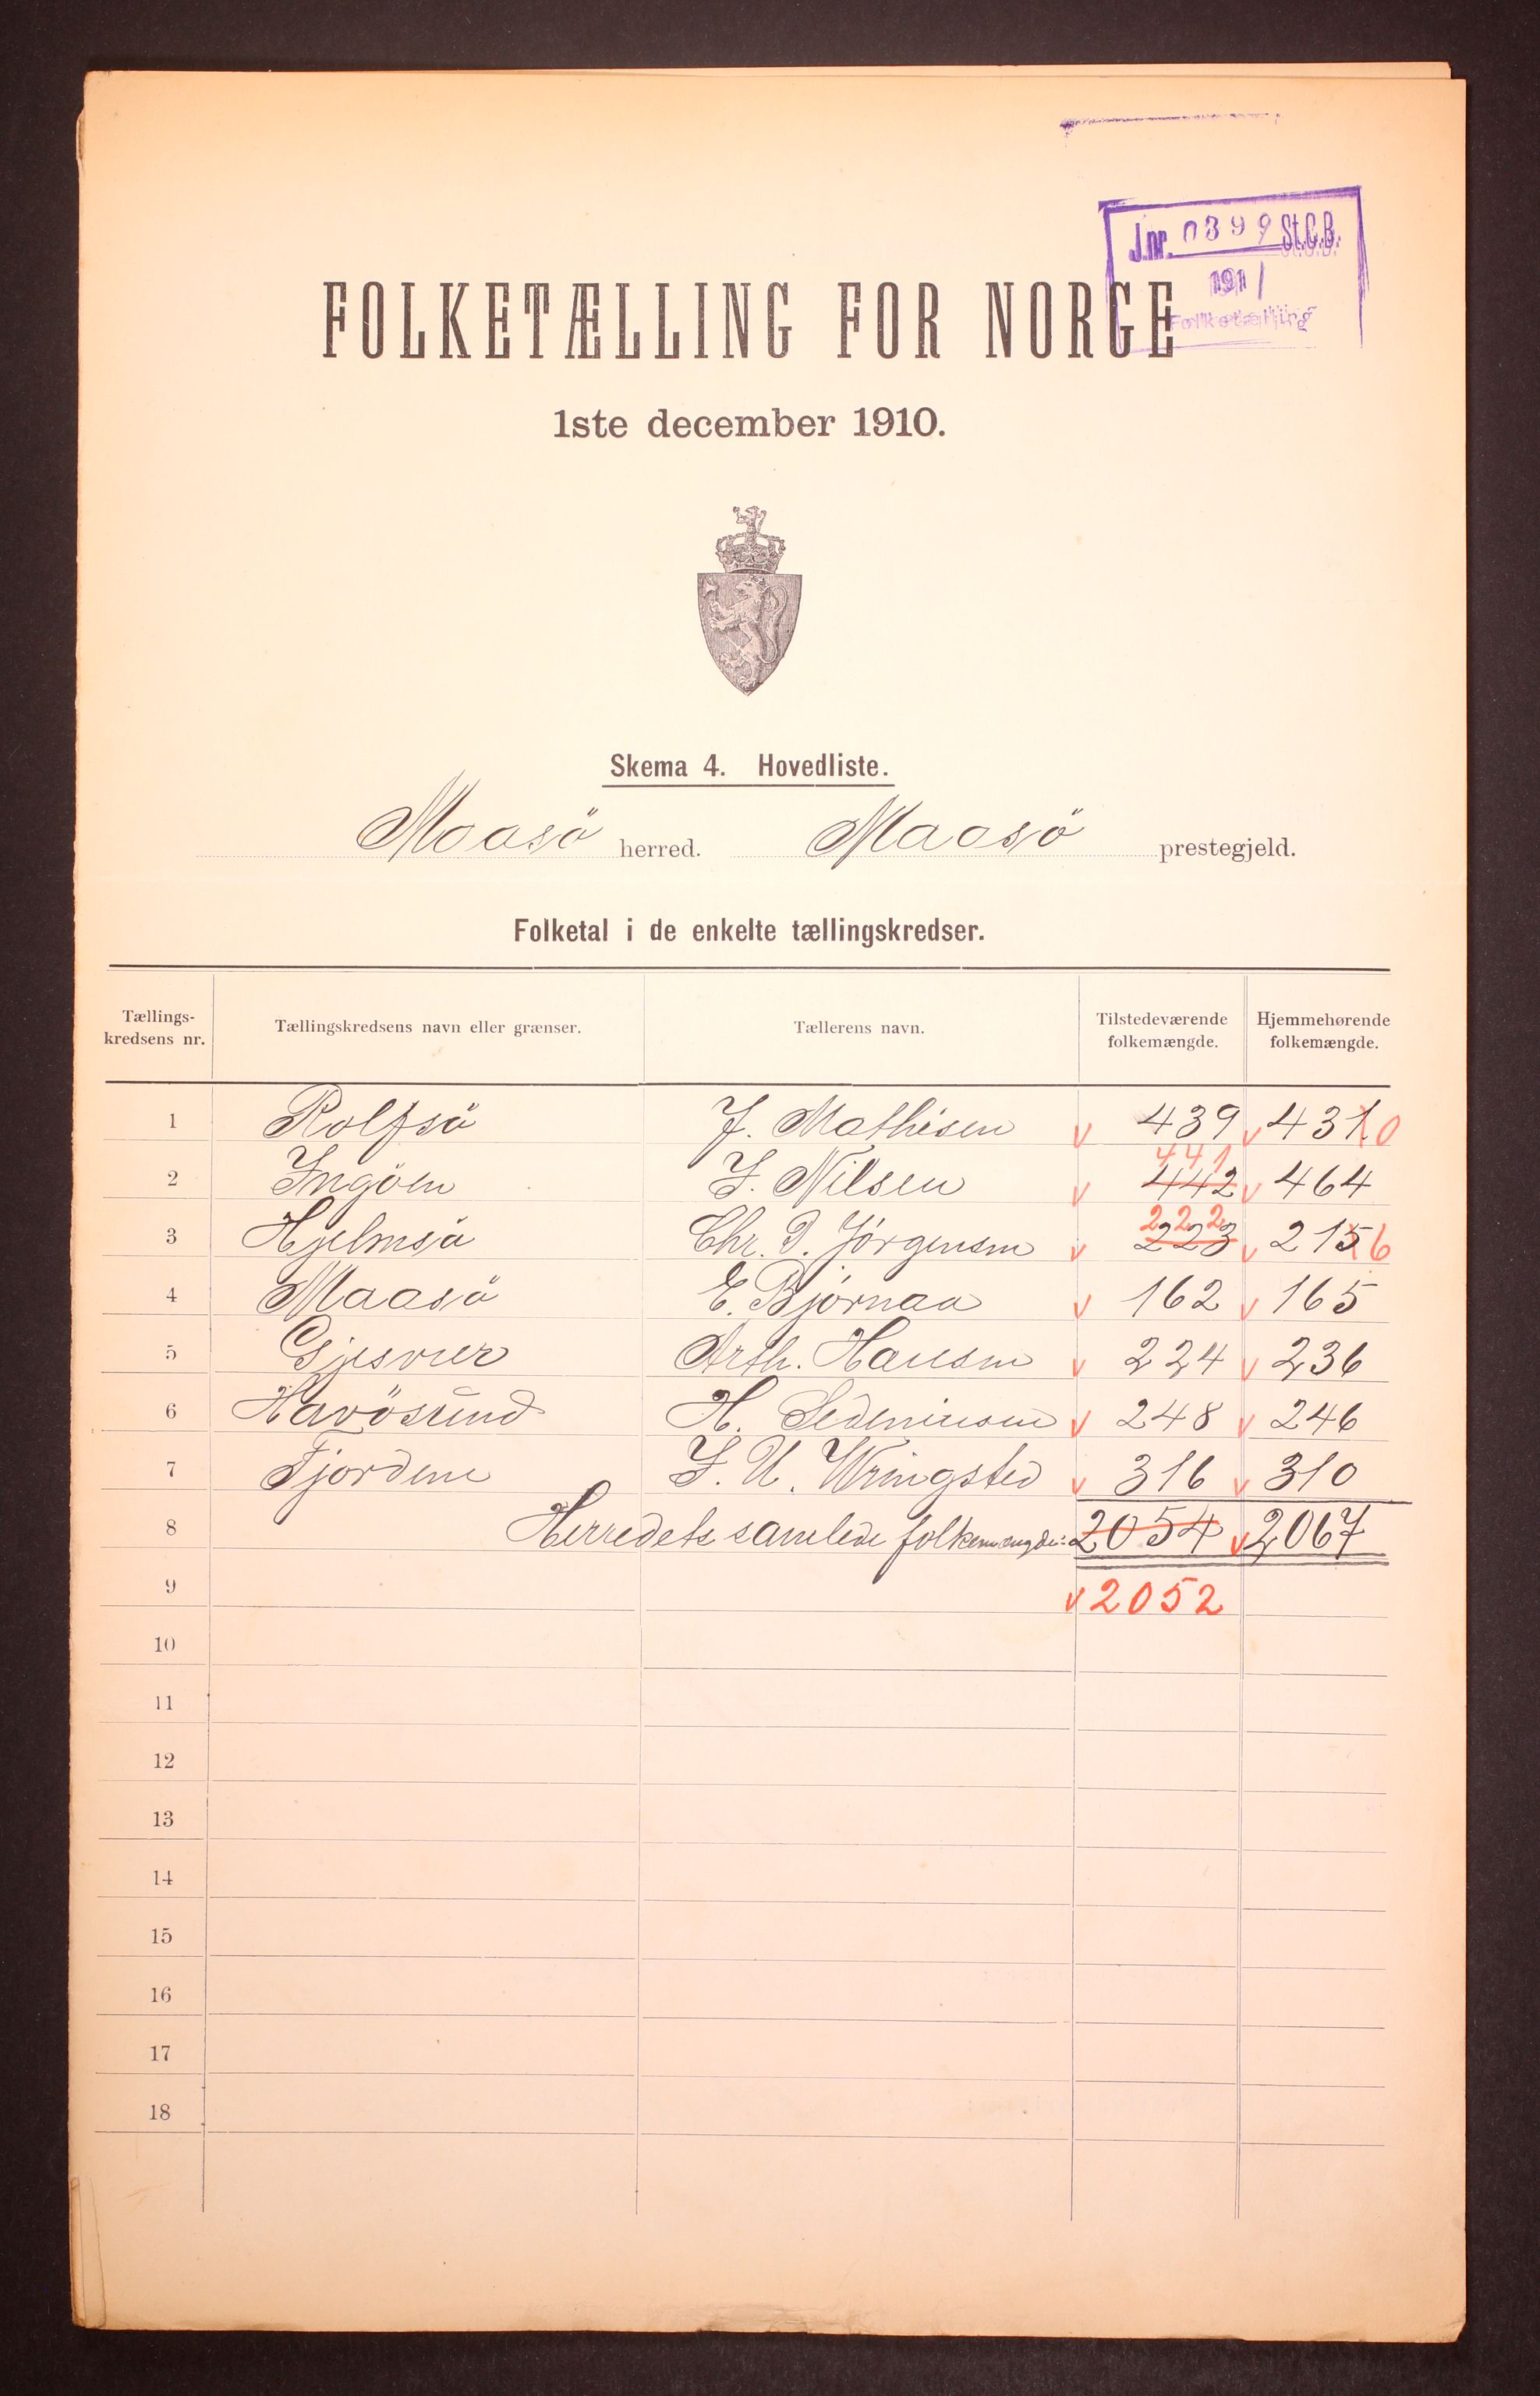 J.nr. 0399 St.C.B.
1911
Folketælling
FOLKETÆLLING FOR NORGE
1ste december 1910.
Skema 4. Hovedliste.
Maasö herred. Maasö prestegjeld.
Folketal i de enkelte tællingskredser.
Tællings-kredsens nr. Tællingskredsens navn eller grænser. Tællerens navn. Tilstedeværende folkemængde. Hjemmehørende folkemængde.
1 Rolfsö J. Mathisen v 439 v 431 0
441
2 Ingöen I. Nilsen v 442 v 464
222
3 Hjelmsö Chr. D. Jörgensen v 223 v 215 6
4 Maasö E. Bjørnaa v 162 v 165
5 Gjesvær Arth. Hansen v 224 v 236
6 Havösund H. v 248 v 246
7 Fjordene v 316 v 310
8 Herredets samlede folkemængde: 2054 v 2067
9 v 2052
10
11
12
13
14
15
16
17
18